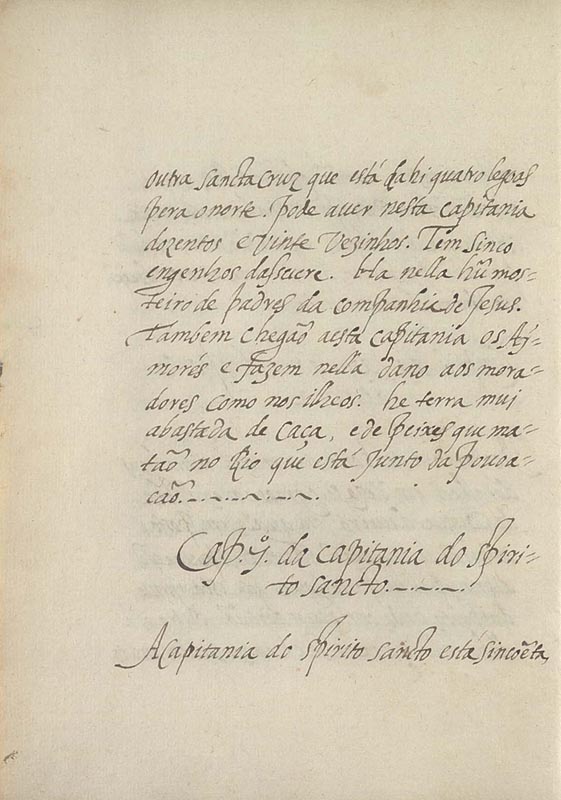 outra sancta Cruz que está dahi quatro legoas
pera o norte. pode aver nesta capitania
dozentos e vinte vezinhos. Tem sinco
engenhos dassucre. ha nella hũ mos-
teiro de padres da companhia de Jesus.
Tambem chegaõ a esta capitania os Aỹ-
morés e fazem nella dano aos mora-
dores como nos ilheos. he terra mui
abastada de caça, e de peixes que ma-
taõ no Rio que está junto da povoa-
caõ.
Cap. 5. da capitania do spiri-
to sancto.
A Capitania do spirito sancto está sincoẽta